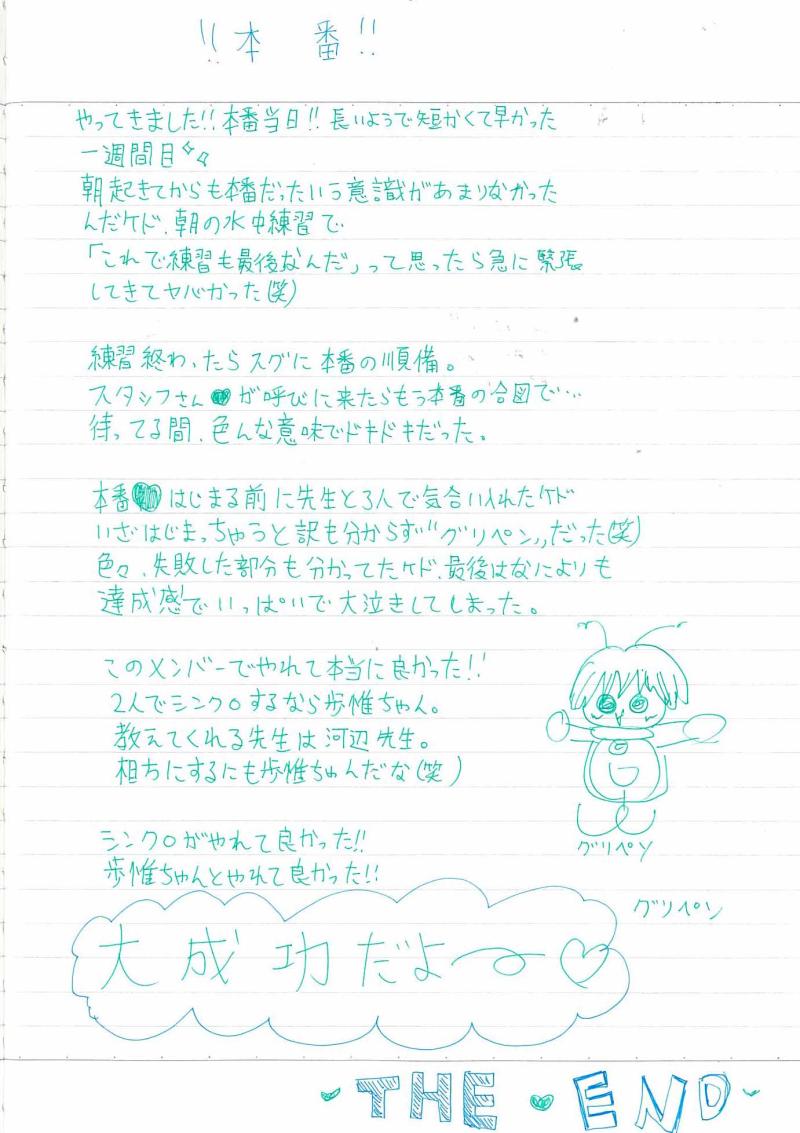 !!本番!!
やってきました!!本番当日!!長いようで短かくて早かった
一週間目✧✧
朝起きてからも本番だったいう意識があまりなかった
んだケド、朝の水中練習で
「これで練習も最後なんだ」って思ったら急に緊張
してきてヤバかった(笑)
練習終わったらスグに本番の順備。
スタッフさん♥が呼びに来たらもう本番の合図で…
待ってる間、色んな意味でドキドキだった。
本番♥はじまる前に先生と3人で気合い入れたケド
いざはじまっちゃうと訳も分からず"グリペン"だった(笑)
色々、失敗した部分も分かってたケド、最後はなによりも
達成感でいっぱいで大泣きしてしまった。
このメンバーでやれて本当に良かった!!
2人でシンクロするなら歩惟ちゃん。
教えてくれる先生は河辺先生。
相方にするにも歩惟ちゃんだな(笑)
グリペン
シンクロがやれて良かった!!
歩惟ちゃんとやれて良かった!!
グリペン
大成功だよ〜♡
♥THE♥END♥